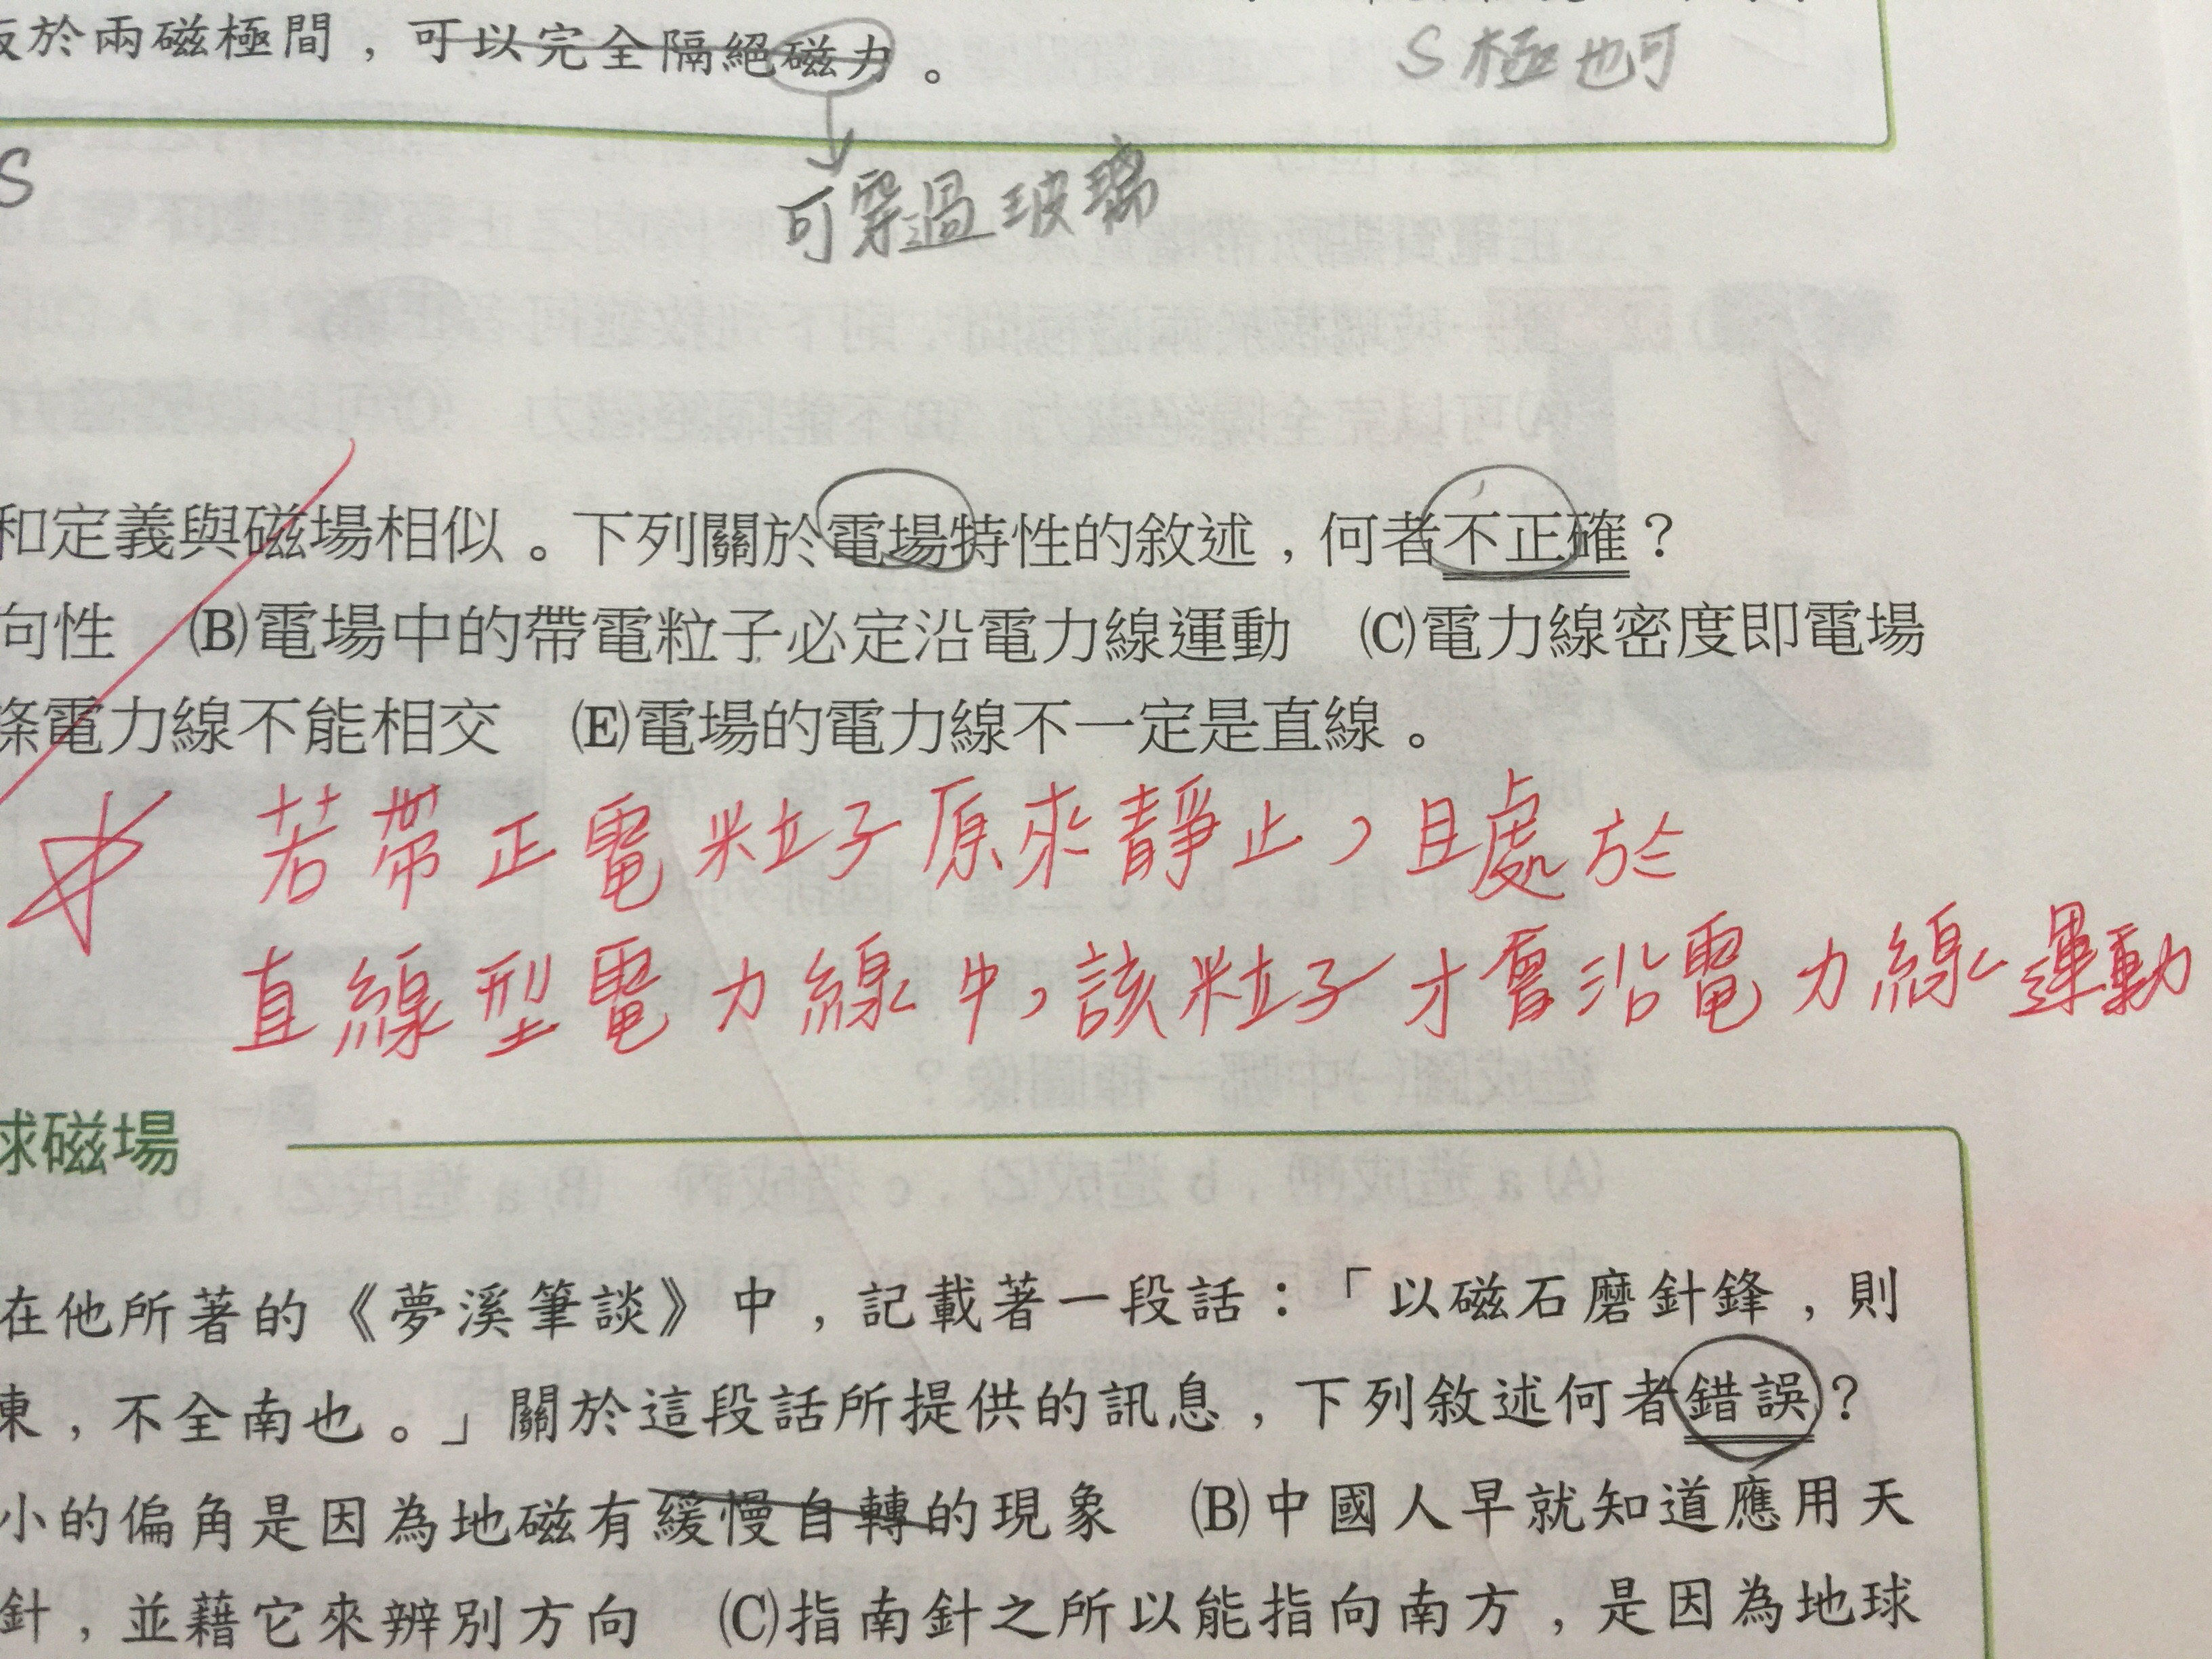 於兩磁極間，可以完全隔絕磁力。
S極也可
S
可穿過玻璃
和定義與磁場相似。下列關於電場特性的敘述，何者不正確？
向性　(B)電場中的帶電粒子必定沿電力線運動　(C)電力線密度即電場
條電力線不能相交　(E)電場的電力線不一定是直線。
若帶正電粒子原來靜止，且處於
直線型電力線中，該粒子才會沿電力線運動
球磁場
在他所著的《夢溪筆談》中，記載著一段話：「以磁石磨針鋒，則
東，不全南也。」關於這段話所提供的訊息，下列敘述何者錯誤？
小的偏角是因為地磁有緩慢自轉的現象　(B)中國人早就知道應用天
針，並藉它來辨別方向　(C)指南針之所以能指向南方，是因為地球